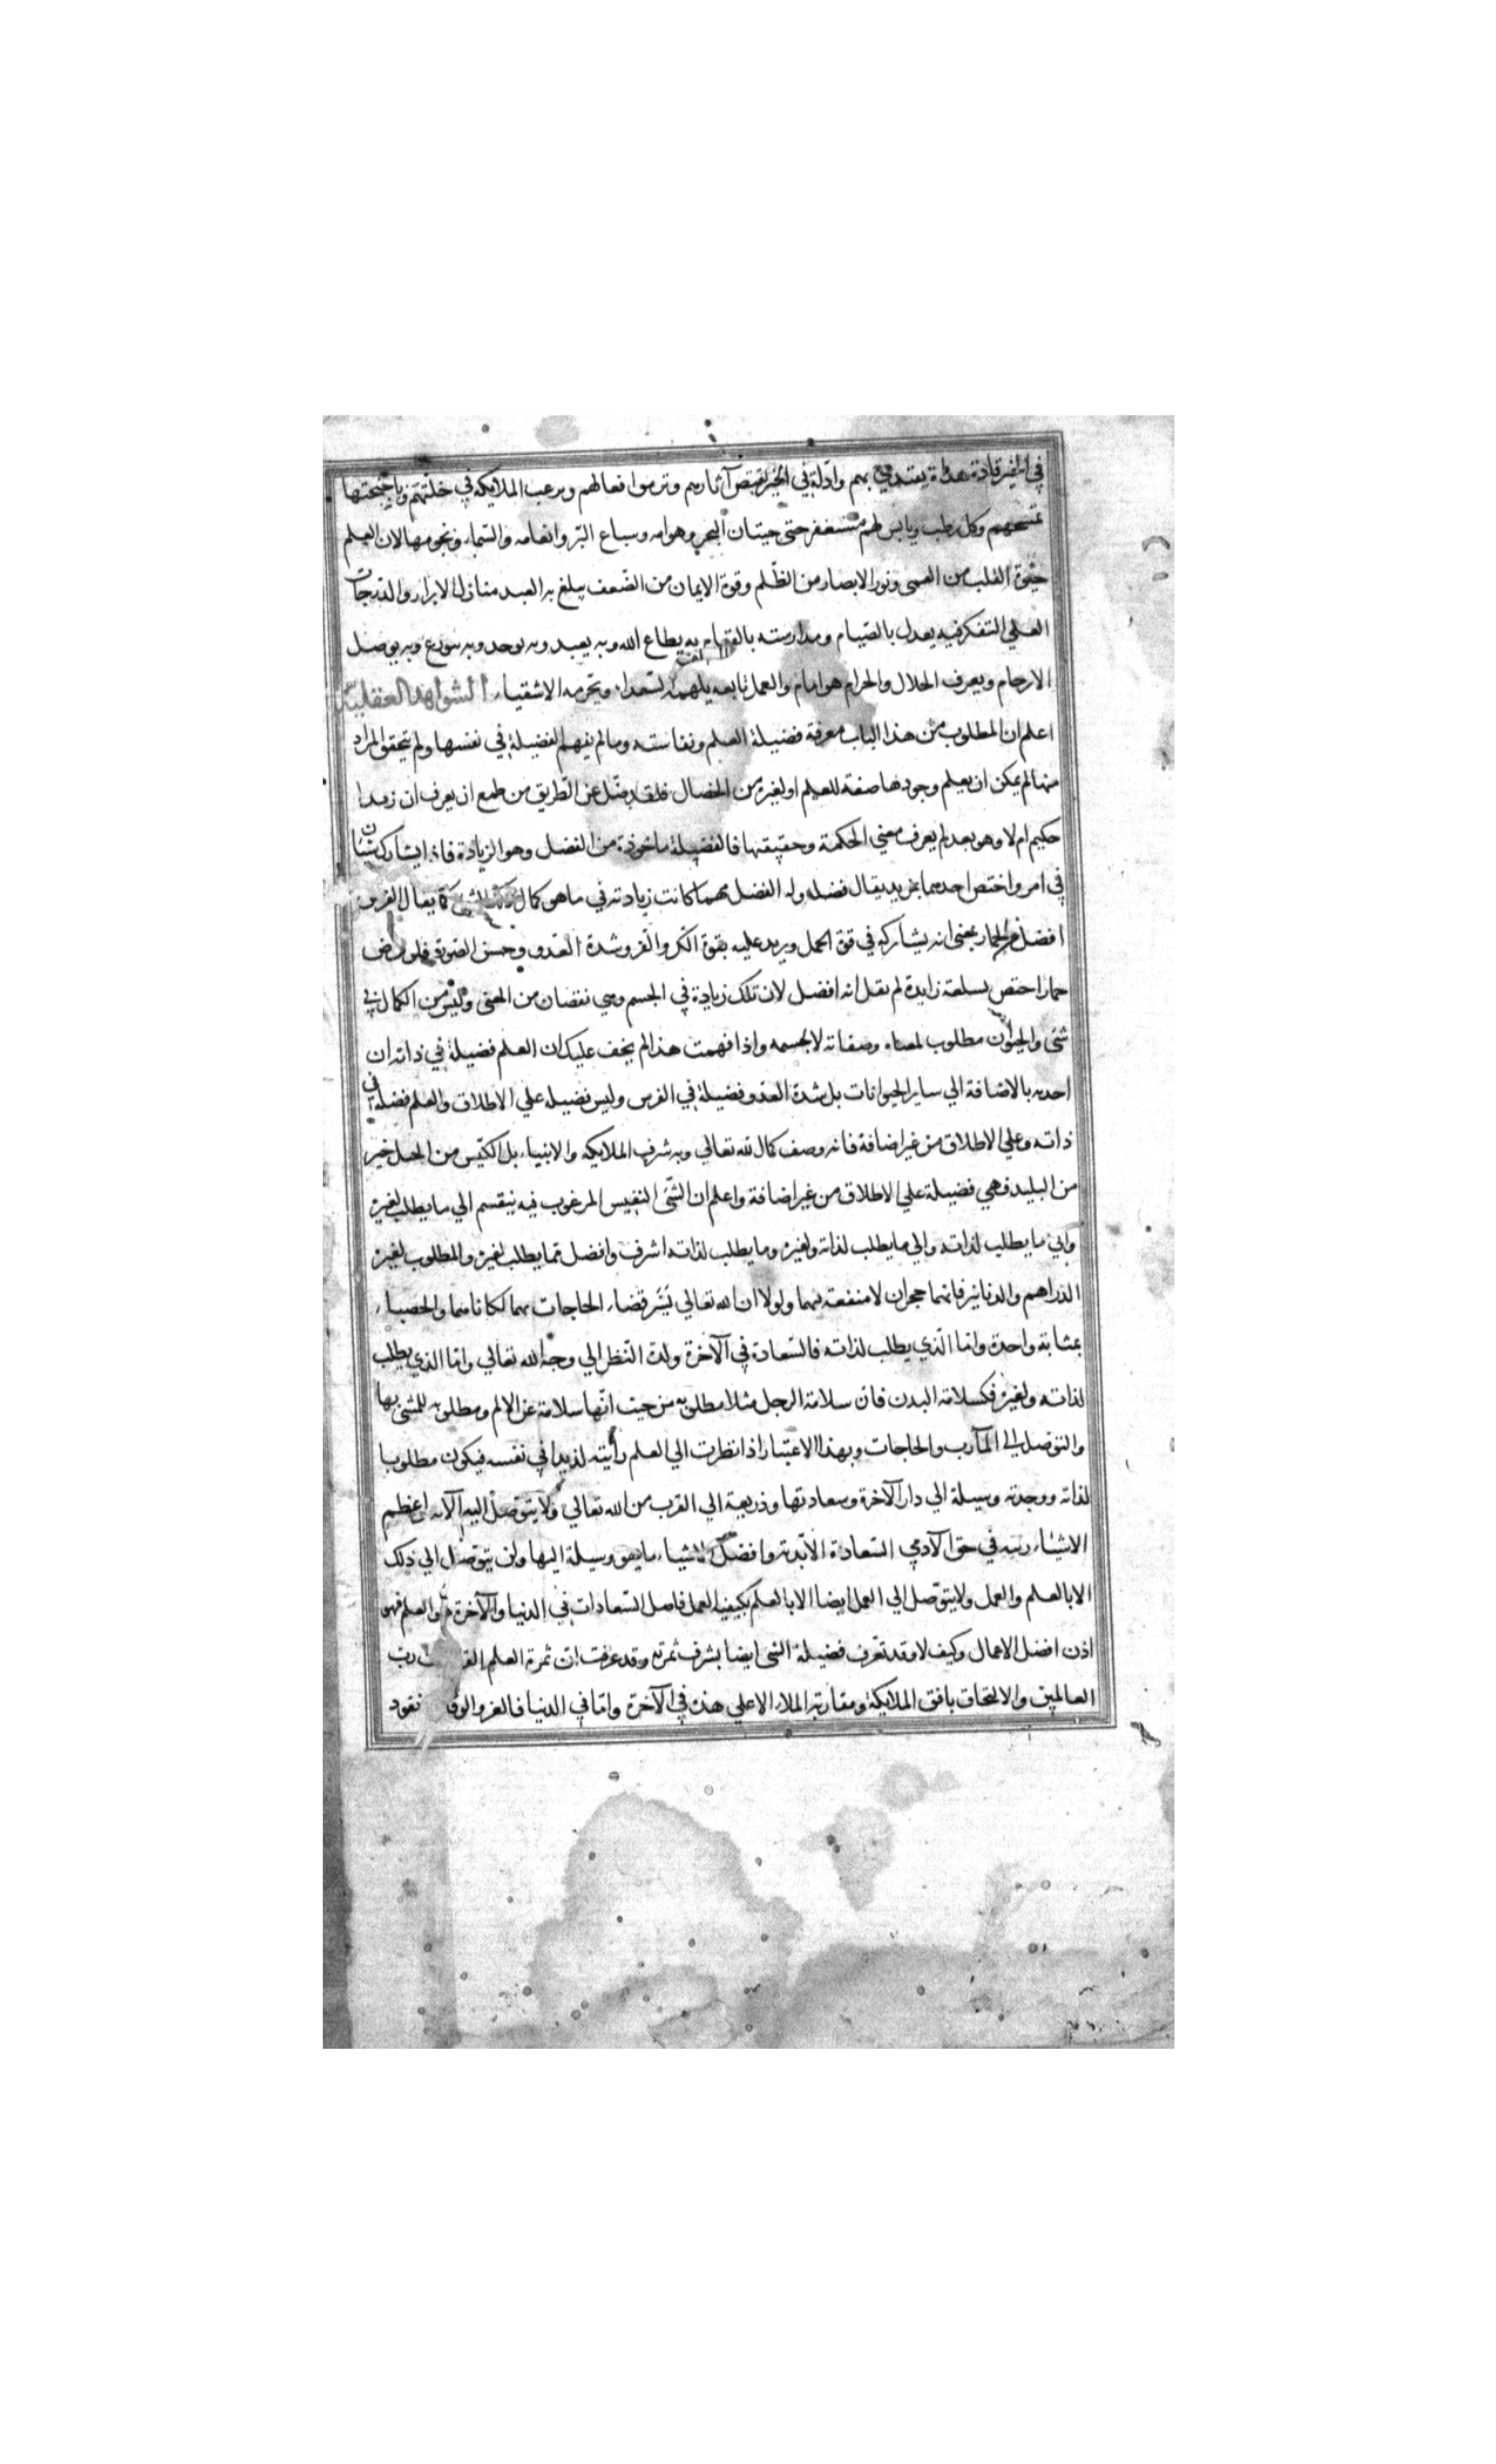 في الخير قادة هداة يقتدي بهم وادلة في الخير تقتص آثارهم وترمق افعالهم وترغب الملايكة في خلتهم وباجنحتها
تمسحهم وكل رطب ويابس لهم مستغفر حتى حيتان البحر وهوامه وسباع البرّ وانعامه والسّماء ونجومها لان العلم
حيوة القلب من العمى ونور الابصار من الظّلم وقوة الايمان من الضّعف يبلغ به العبد منازل الابرار والدّرجات
العلي التفكر فيه يعدل بالصّيام ومدارسته بالقيام به يطاع الله وبه يعبد وبه يوحد وبه يتورع وبه يوصل
الارحام ويعرف الحلال والحرام هو امام والعمل تابعه يلهمه السّعداء ويحرمه الاشقياء الشواهد العقلية
اعلم ان المطلوب من هذا الباب معرفة فضيلة العلم ونفاسته وما لم يفهم الفضيلة في نفسها ولم يتحقق المراد
منها لم يمكن ان يعلم وجودها صفة للعلم او لغيره من الخصال فلقد ضلّ عن الطّريق من طمع ان يعرف ان زيدا
حكيم ام لا وهو بعد لم يعرف معني الحكمة وحقيقتها فالفضيلة ماخوذة من الفضل وهو الزيادة فاذا يشارك شيئان
في امر واختص احدهما بمزيد يقال فضله وله الفضل مهما كانت زيادته في ما هو كمال ذلك الشيء كما يقال الفرس
افضل من الحمار بمعنى انه يشاركه في قوة الحمل ويزيد عليه بقوة الكّر والفّر وشدة العدو وحسن الصّورة فلو فرض
حمار اختص بسلعة زايدة لم يقل انه افضل لان تلك زيادة في الجسم وهي نقصان من المعنى وليس من الكمال في
شئ والحيوان مطلوب لمعناه وصفاته لا لجسمه واذا فهمت هذا لم يخف عليك ان العلم فضيلة في ذاته ان
اخذته بالاضافة الي ساير الحيوانات بل شدة العدو فضيلة في الفرس وليس فضيلة علي الاطلاق والعلم فضيلة في
ذاته وعلي الاطلاق من غير اضافة فانه وصف كمال لله تعالي وبه شرف الملايكه والانبياء بل الكيّس من الخيل خير
من البليد فهي فضيلة علي الاطلاق من غير اضافة واعلم ان الشّئ النفيس المرغوب فيه ينقسم الي ما يطلب لغيره
والي ما يطلب لذاته والي ما يطلب لذاته ولغيره وما يطلب لذاته اشرف وافضل مما يطلب لغيره والمطلوب لغيره
الدراهم والدنانير فانهما حجران لا منفعة لهما ولولا ان الله تعالي يَسَّر قضاء الحاجات بهما لكانا هما والحصباء
بمثابة واحدة وامّا الّذي يطلب لذاته فالسّعادة في الآخرة ولذة النّظر الي وجه الله تعالي وامّا الذي يطلب
لذاته ولغيره فكسلامة البدن فان سلامة الرجل مثلا مطلوبه من حيث انّها سلامة عن الالم ومطلوبه للمشي بها
والتوصل الى المآرب والحاجات وبهذا الاعتبار اذا نظرت الي العلم رأيته لذيذا في نفسه فيكون مطلوبا
لذاته ووجدته وسيلة الي دار الآخرة وسعادتها وذريعة الي القرب من الله تعالي ولا يتوصل اليه الّا به واعظم
الاشياء رتبه في حق الآدمي السّعادة الابّدية وافضل الاشياء ما هو وسيلة اليها ولن يتوصل الي ذلك
الا بالعلم والعمل ولا يتوّصل الي العمل ايضا الا بالعلم بكيفية العمل فاصل السّعادات في الدنيا والآخرة هو العلم فهو
اذن افضل الاعمال وكيف لا وقد تعّرف فضيلة الشئ ايضا بشرف ثمرته وقد عرفت انّ ثمرة العلم القرب رب
العالمين والالتحاق بافق الملايكة ومقاربة الملاء الاعلي هذه في الآخرة وامّا في الدنيا فالعز والوقار نفود